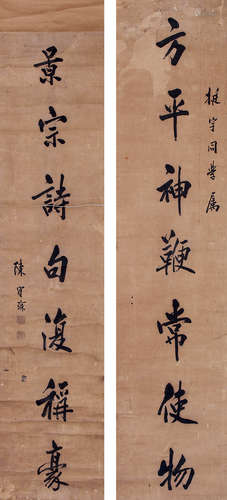 方平神鞭常使物
宇同學属
景宗詩句復稱豪
陳寶琛